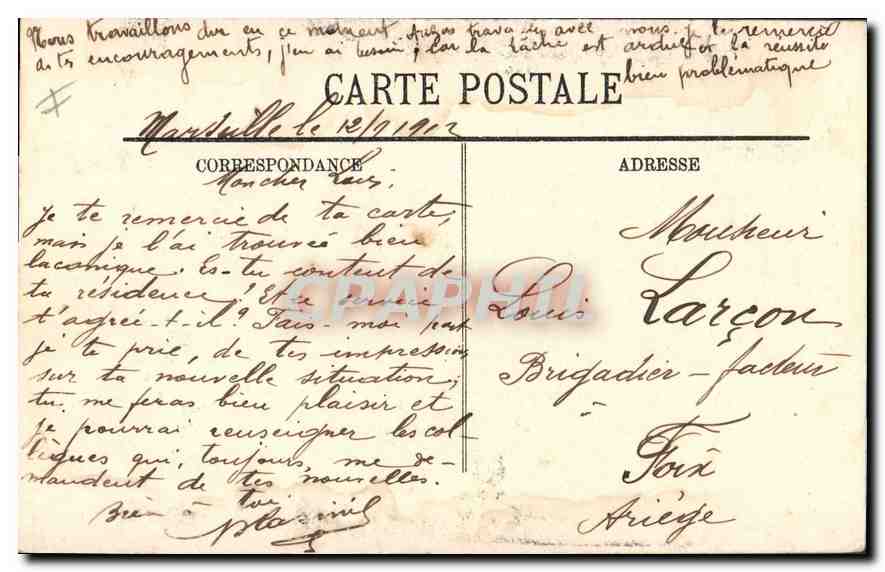 Nous travaillons dur en ce moment. travaille avec nous. Je te remercie
de tes encouragements, j'en ai besoin, car la tâche est ardue et la réussite
bien problématique
CARTE POSTALE
Marseille le 12/7 1912
CORRESPONDANCE
ADRESSE
Mon cher Louis,
Je te remercie de ta carte,
mais je l'ai trouvée bien
laconique. Es-tu content de
ta résidence? Et ce service
t'agrée-t-il? Fais-moi part
je te prie, de tes impressions
sur ta nouvelle situation;
tu me feras bien plaisir et
je pourrai renseigner les col-
lègues qui, toujours, me de-
mandent de tes nouvelles.
Bien à toi
Monsieur
Louis Larçon
Brigadier-facteur
Foix
Ariège
CPAPHIL